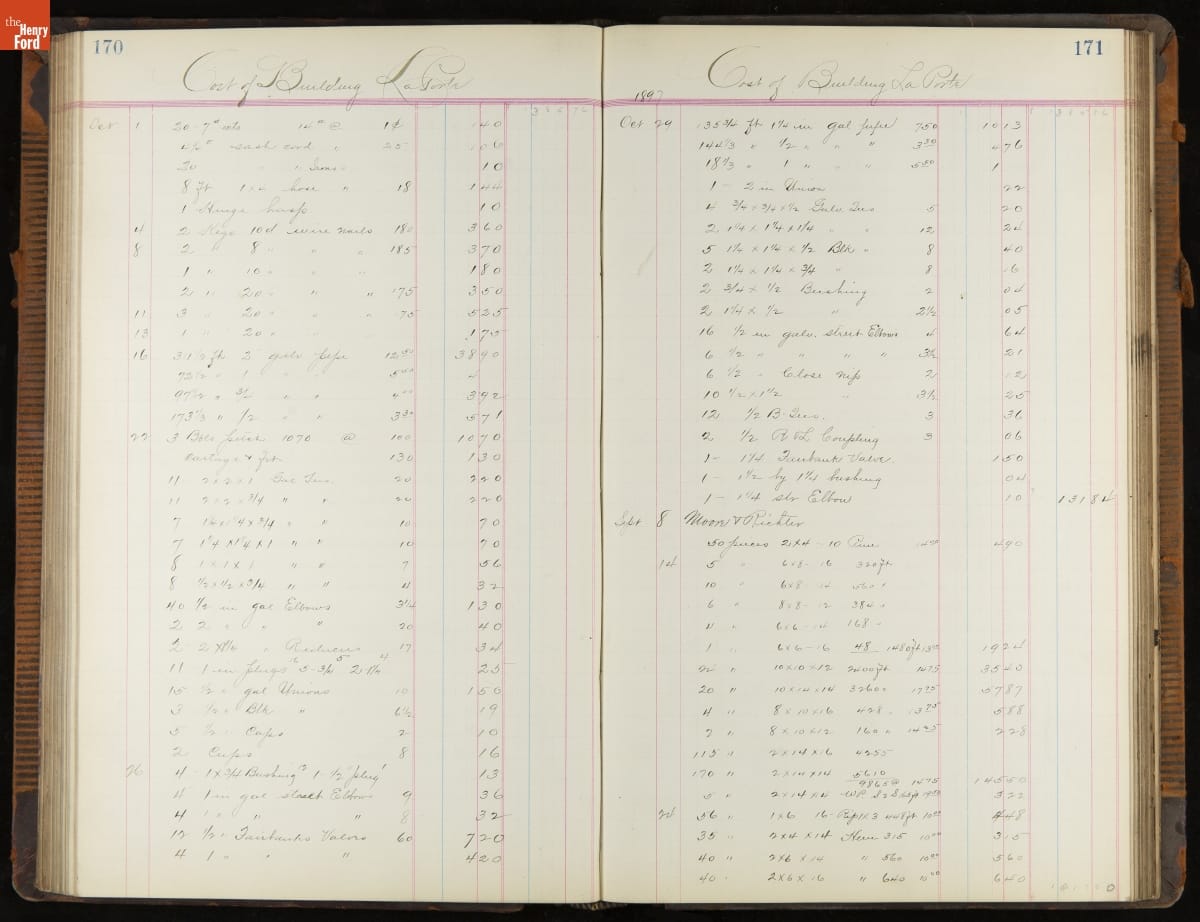 the Henry Ford
170
Cost of Building La Porte
Oct 1 20 - 7" 14" @ 1¢ 1 40
sash cord " 25 1 06
20 " " 10
8 ft 1 x 4 hose " 18 1 44
1 Hinge hasp 10
4 2 Kegs 10d wire nails 180 3 60
8 2 " 8 " " " 185 3 70
1 " 10 " " " 1 80
2 " 20 " " " 175 3 50
11 3 " 20 " " " 75 5 25
13 1 " 20 " " 1 75
16 ft 2 galv pipe 12 50 38 90
" 1 " " 5 4
" 3/4 " " 4 00 3 92
173 1/3 " 1/2 " " 3 30 5 71
22 3 Bbls pitch 1070 @ 100 10 70
Cartage & frt 130 1 30
11 2 x 2 x 1 Gal Tees 20 2 20
11 2 x 2 x 3/4 " " 20 2 20
7 1 1/4 x 1 1/4 x 3/4 " " 10 70
7 1 1/4 x 1 1/4 x 1 " " 10 70
8 1 x 1 x 1 " " 7 56
8 1/2 x 1/2 x 3/4 " " 4 32
40 1/2 in gal Elbows 3 1/4 1 30
2 2 " " " 20 40
2 2 x 1 1/2 " Reducers 17 34
11 1 in plugs 5 - 3/4 2 - 1 1/4 25
15 1/2 " gal Unions 10 1 50
3 1/2 " Blk " 6 1/2 19
5 1/2 " Caps 2 10
2 Cups 8 16
26 4 - 1 x 3/4 Bushing 1 - 1/2 plug 13
4 1 in gal street Elbows 9 36
4 1 " " " 8 32
12 1/2 " Fairbanks Valves 60 7 20
4 1 " " " 4 20
171
Cost of Building La Porte
1897
Oct 29 135 3/4 ft 1 1/4 in gal pipe 7 50 10 13
144 1/3 " 1/2 " " " 3 30 4 76
18 1/3 " 1 " " " 5 50 1
1 - 2 in Union 22
4 3/4 x 3/4 x 1/2 Galv Tees 5 20
2 1 1/4 x 1 1/4 x 1 1/4 " " 12 24
5 1 1/4 x 1 1/4 x 1/2 Blk " 8 40
2 1 1/4 x 1 1/4 x 3/4 " 8 16
2 3/4 x 1/2 Bushing 2 04
2 1 1/4 x 1/2 " 2 1/2 05
16 1/2 in galv. street Elbows 4 64
6 1/2 " " " " 3 1/2 21
6 1/2 " Close nip 2 12
10 1/2 x 1 1/2 " 2 1/2 25
12 1/2 B. Tees. 3 36
2 1/2 R & L Coupling 3 06
1 - 1 1/4 Fairbanks Valve. 1 50
1 - 1 1/2 by 1 1/4 bushing 04
1 - 1 1/4 str Elbow 10 131 84
Sept 8 Moore & Richter
50 pieces 2 x 4 - 10 Pine 4 90
14 5 " 6 x 8 - 16 320 ft
10 " 6 x 8 - 14 560 "
6 " 8 x 8 - 12 384 "
4 " 6 x 6 - 14 168 "
1 " 6 x 6 - 16 48 1480 ft 13 00 19 24
22 " 10 x 10 x 12 2400 ft 14 75 35 40
20 " 10 x 14 x 14 3260 " 17 75 57 87
4 " 8 x 10 x 16 428 " 13 75 5 88
2 " 8 x 10 x 12 160 " 14 25 2 28
115 " 2 x 14 x 16 4255
170 " 2 x 14 x 14 5610
9865 @ 14 75 145 50
5 " 2 x 14 x 4 3 22
24 56 " 1 x 6 16 - Rip 1 x 3 448 ft 10 00 4 48
35 " 2 x 4 x 14 Hem 315 10 00 3 15
40 " 2 x 6 x 14 " 560 10 00 5 60
40 " 2 x 6 x 16 " 640 10 00 6 40